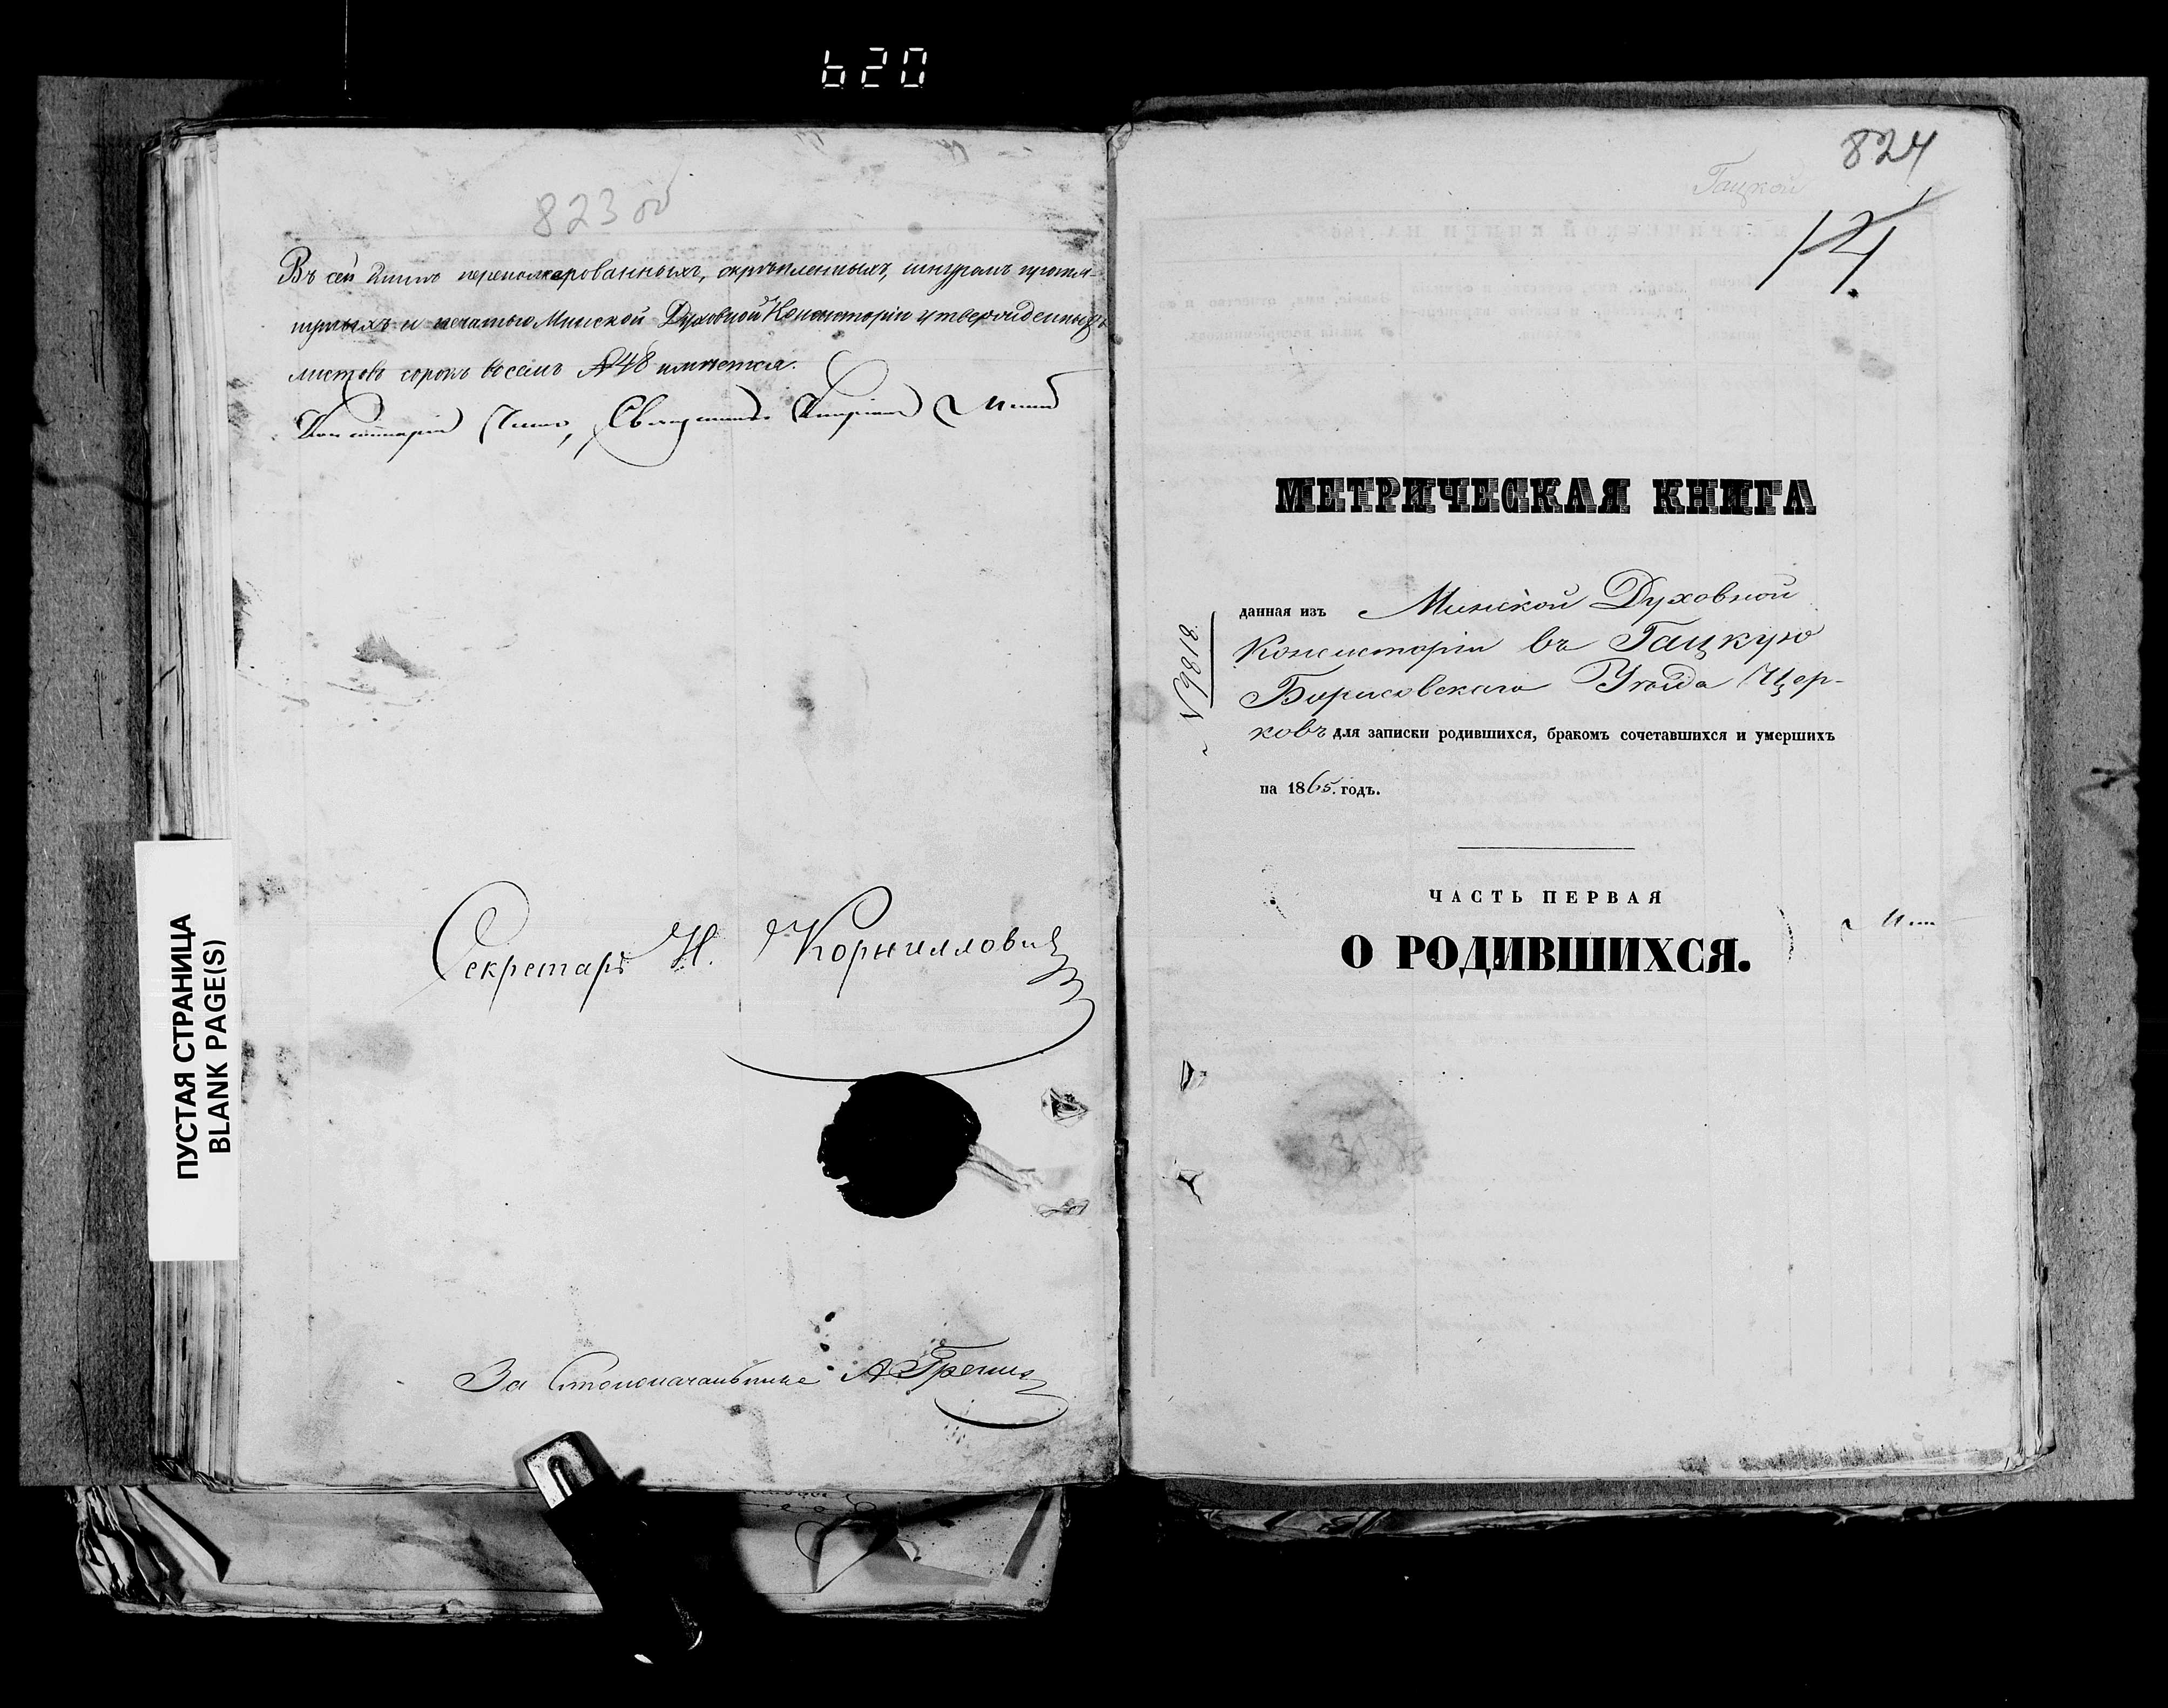 620
823 об
Въ сей книгѣ перенумерованныхъ, скрѣпленныхъ, шнуромъ протя-
нутыхъ и печатью Минской Духовной Консисторіи утвержденныхъ
листовъ сорокъ восемь №48 имѣется.
Консисторіи Членъ, Священникъ
Секретарь Н. Корнилловичъ
За Столоначальника А
ПУСТАЯ СТРАНИЦА
BLANK PAGE(S)
824
Гацкой
14.
МЕТРИЧЕСКАЯ КНИГА
данная изъ Минской Духовной
Консисторіи въ Гацкую
Борисовскаго Уѣзда Цер-
ковь для записки родившихся, бракомъ сочетавшихся и умершихъ
на 1865. годъ.
№9818
ЧАСТЬ ПЕРВАЯ
О РОДИВШИХСЯ.